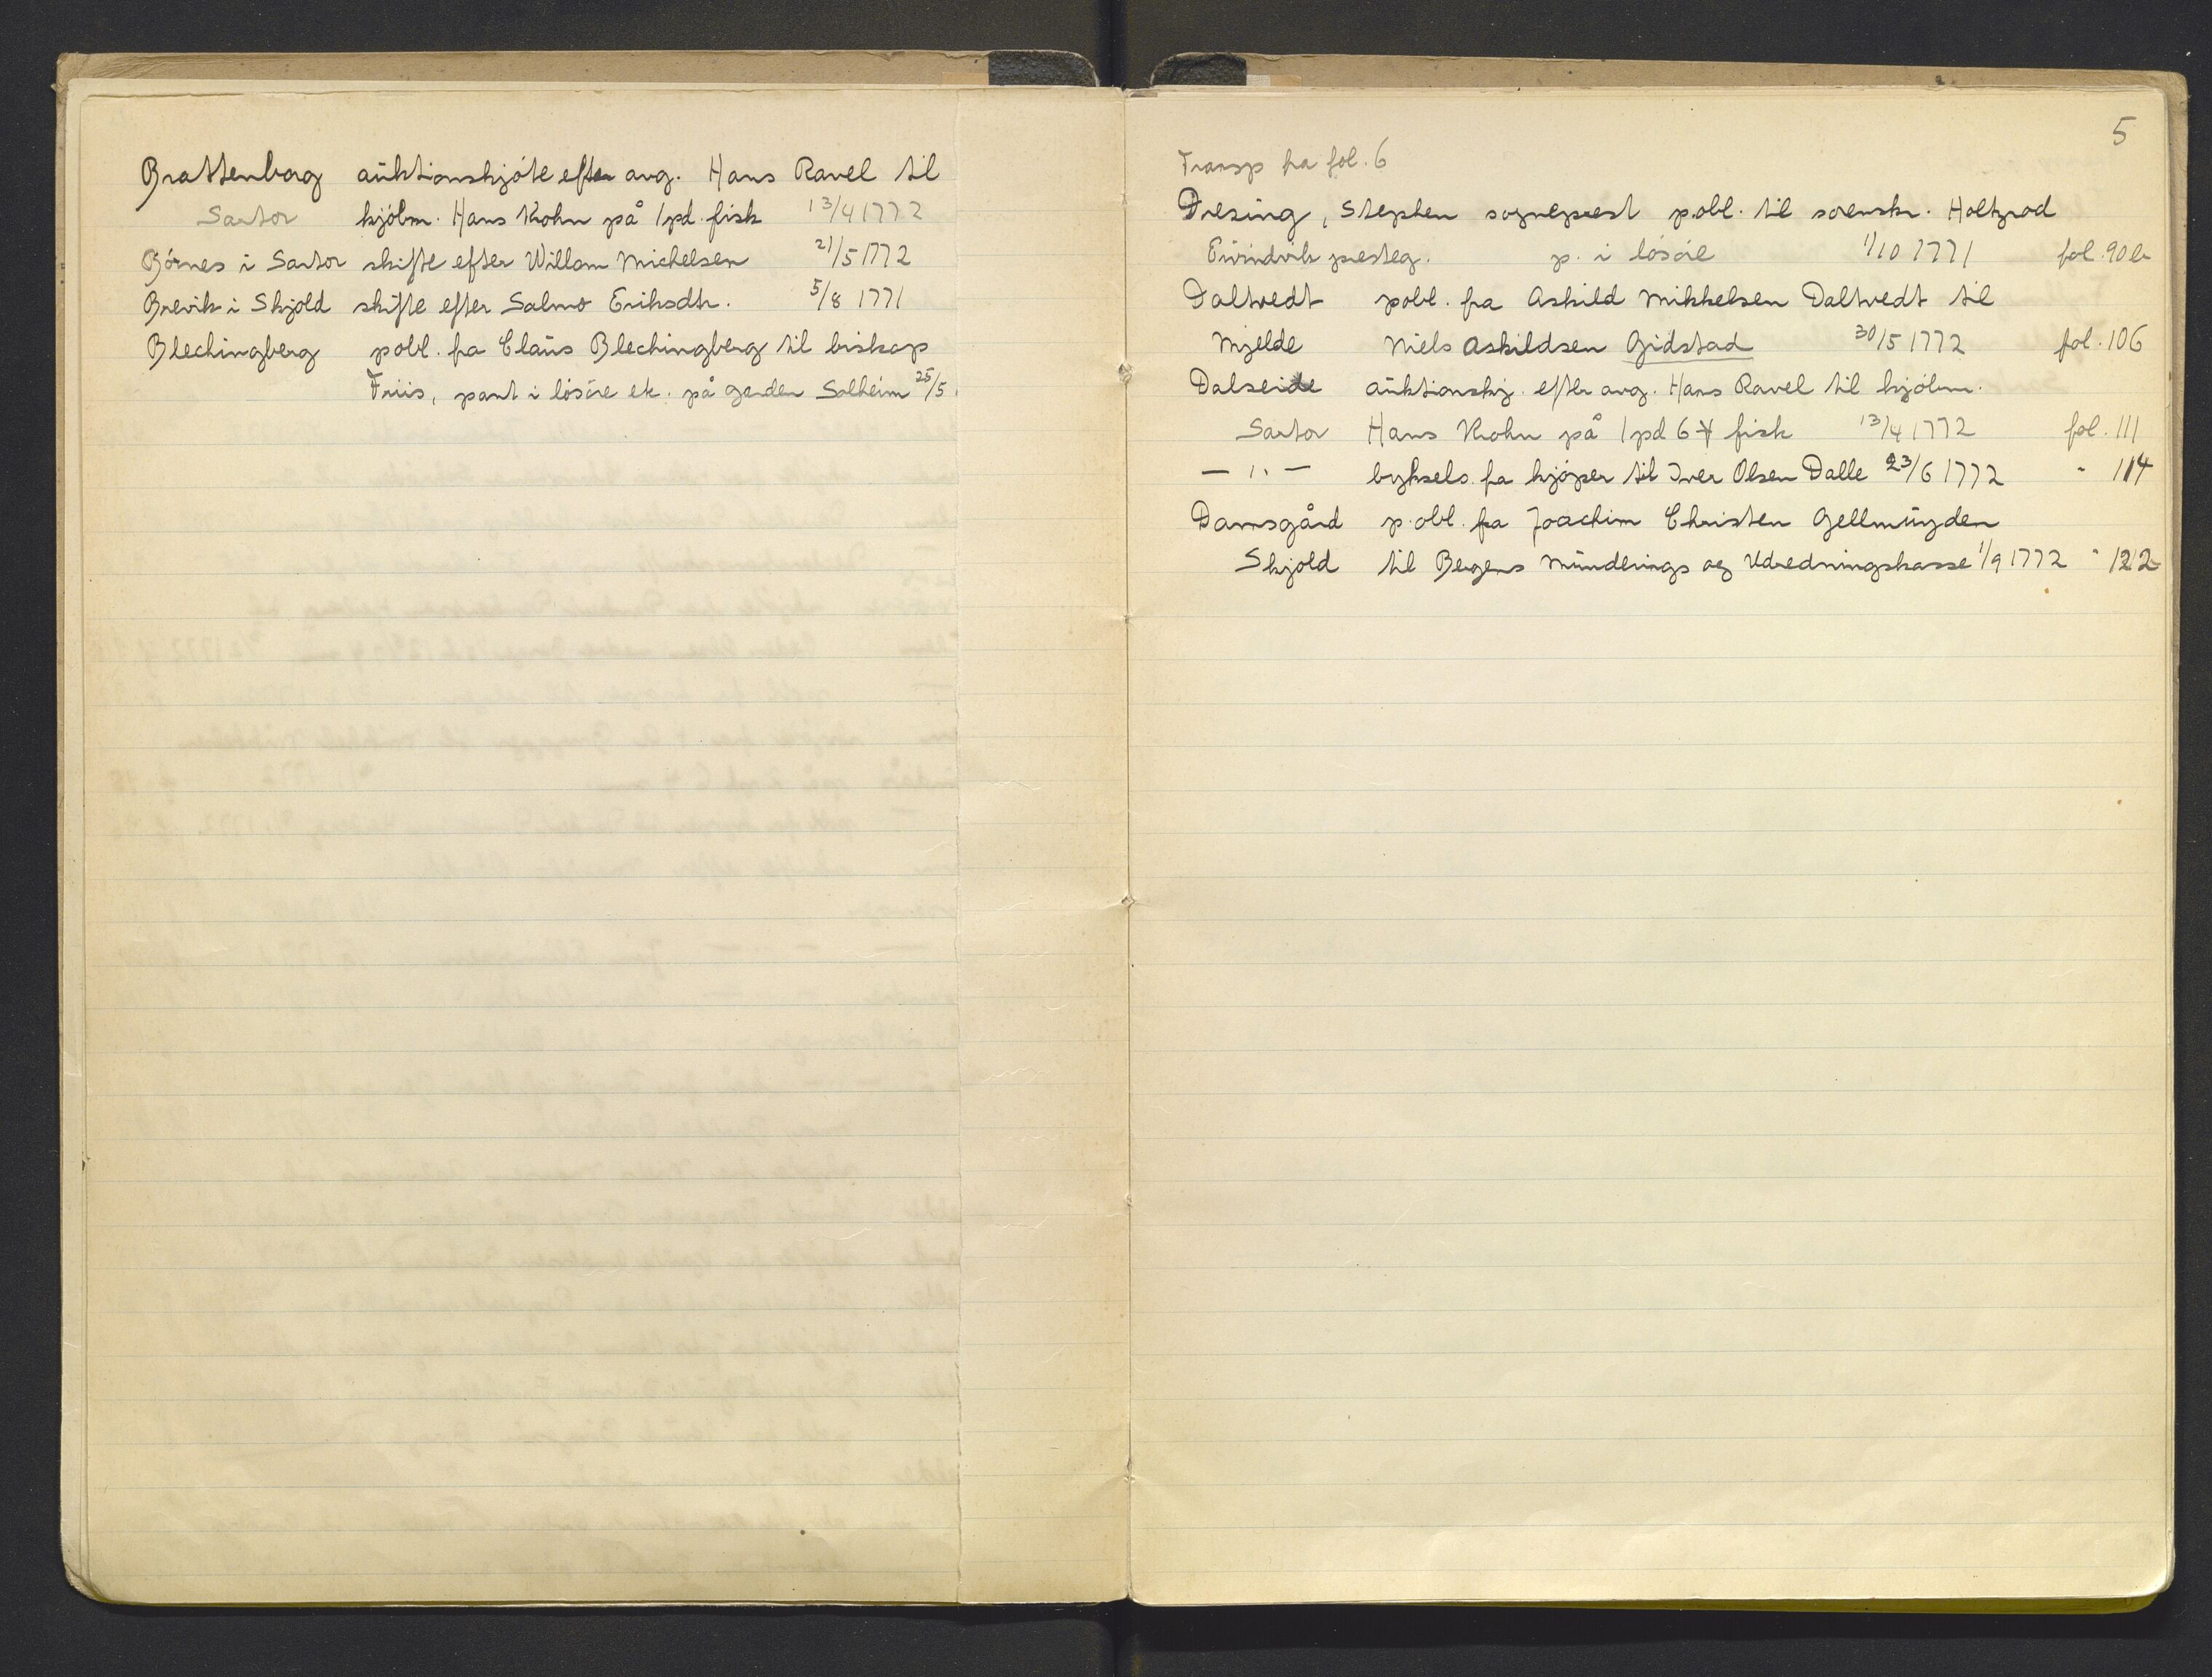 Brattenborg auktionskjöte efter avg. Hans Ravel til
Sartor kjöbm. Hans Krohn på 1 pd. fisk 13/4 1772
Björnes i Sartor skifte efter Willom Michelsen 21/5 1772
Brevik i Skjold skifte efter Salmo Eriksdtr. 5/8 1771
Blechingberg pobl. fra Claus Blechingberg til biskop
Friis, pant i lösöre etc. på garden Solheim 25/5.
5
Transp fra fol. 6
Dresing, Stephen sogneprest p.obl. til sorenskr. Holtzrod
Eivindvik presteg. p. i lösöre 1/10 1771 fol. 90 b
Daltvedt pobl. fra Askild Mikkelsen Daltvedt til
Mjelde Niels Askildsen Gidstad 30/5 1772 fol. 106
Dalseide auktionskj. efter avg. Hans Ravel til kjöbm.
Sartor Hans Krohn på 1 pd 6 fisk 13/4 1772 fol. 111
— " — byksels. fra kjöper til Iver Olsen Dalle 23/6 1772 " 114
Damsgård p.obl. fra Joachim Christen Gellmuyden
Skjold til Bergens Munderings og Udredningskasse 1/9 1772 " 122